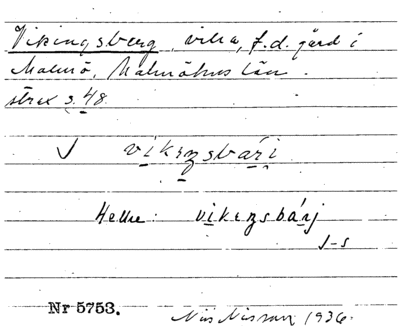 Vikingsberg, villa, f.d. gård i
Malmö, Malmöhus län.
strax s. 48.
√ vikiŋsbári
Heller: vikiŋsbárj
J-s
Nr 5753. Nils Nilsson 1936.